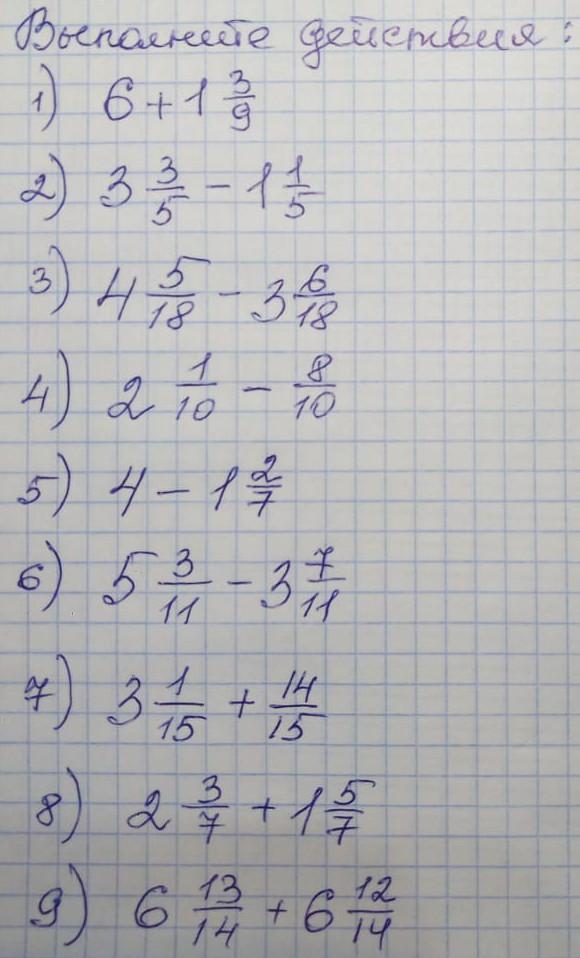 Выполните действия:
1) 6 + 1 3/9
2) 3 3/5 - 1 1/5
3) 4 5/18 - 3 6/18
4) 2 1/10 - 8/10
5) 4 - 1 2/7
6) 5 3/11 - 3 7/11
7) 3 1/15 + 14/15
8) 2 3/7 + 1 5/7
9) 6 13/14 + 6 12/14